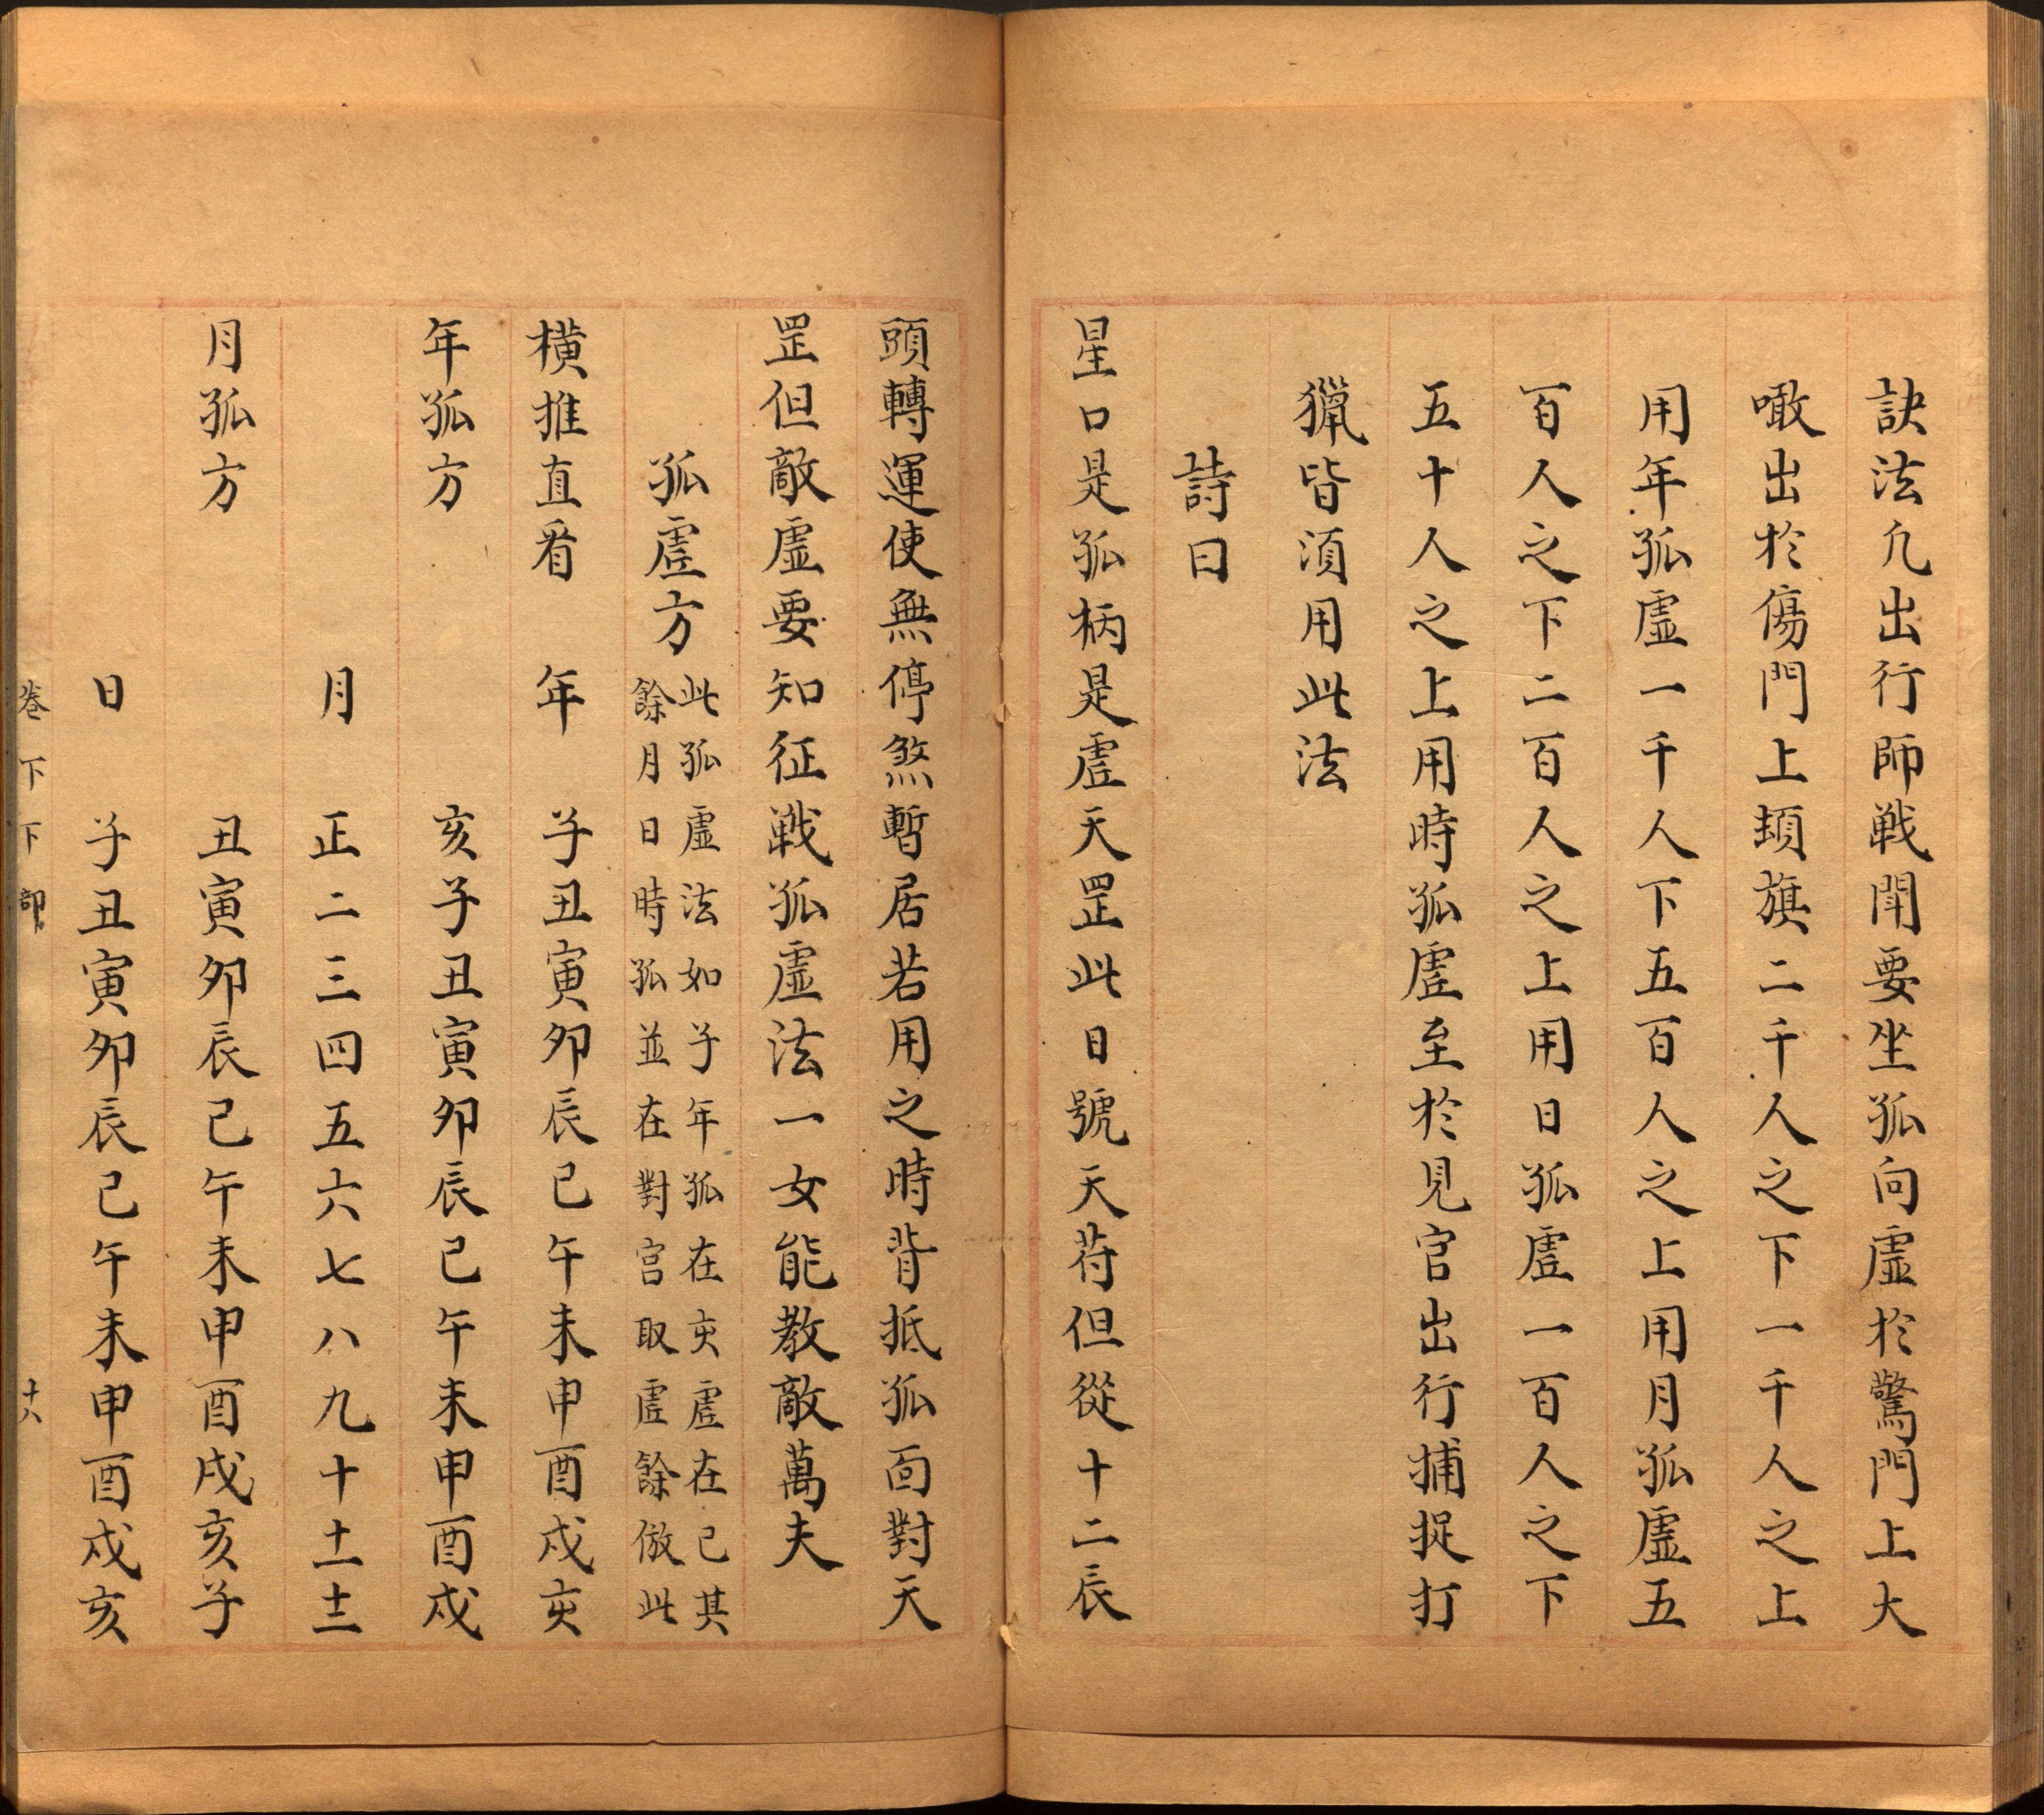 訣法凢出行師戦閗要坐孤向虛於驚門上大
噉出於傷門上頬旗二千人之下一千人之上
用年孤虛一千人下五百人之上用月孤虛五
百人之下二百人之上用日孤虛一百人之下
五十人之上用時孤虛至於見官出行捕捉打
獵皆須用此法
詩曰
星口是孤柄是虛天罡此日號天苻但從十二辰
頭轉運使無停煞暫居若用之時背抵孤面對天
罡但敵虛要知征戦孤虛法一女能教敵萬夫
孤虛方 此孤虛法如子年孤在亥虛在己其
餘月日時孤並在對宮取虛餘倣此
橫推直看 年 子丑寅夘辰己午未申酉戍亥
年孤方 亥子丑寅夘辰己午未申酉戍
月 正二三四五六七八九十十一十二
月孤方 丑寅夘辰己午未申酉戌亥子
日 子丑寅夘辰己午未申酉戍亥
卷下下部 十六